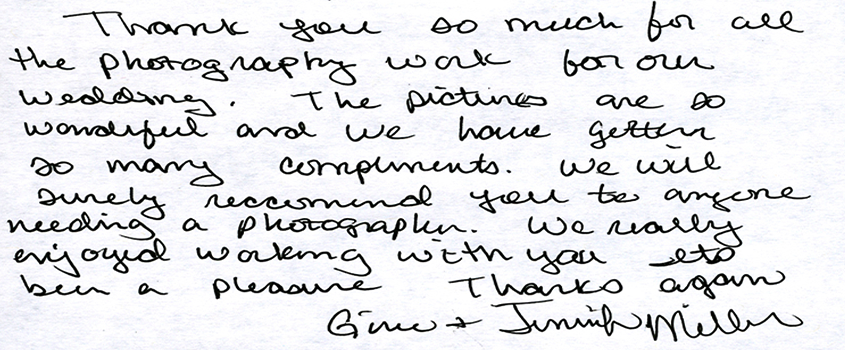 Thank you so much for all
the photography work for our
wedding. The pictures are so
wonderful and we have gotten
so many compliments. We will
surely reccomend you to anyone
needing a photographer. We really
enjoyed working with you its
been a pleasure Thanks again
+ Jennifer Miller